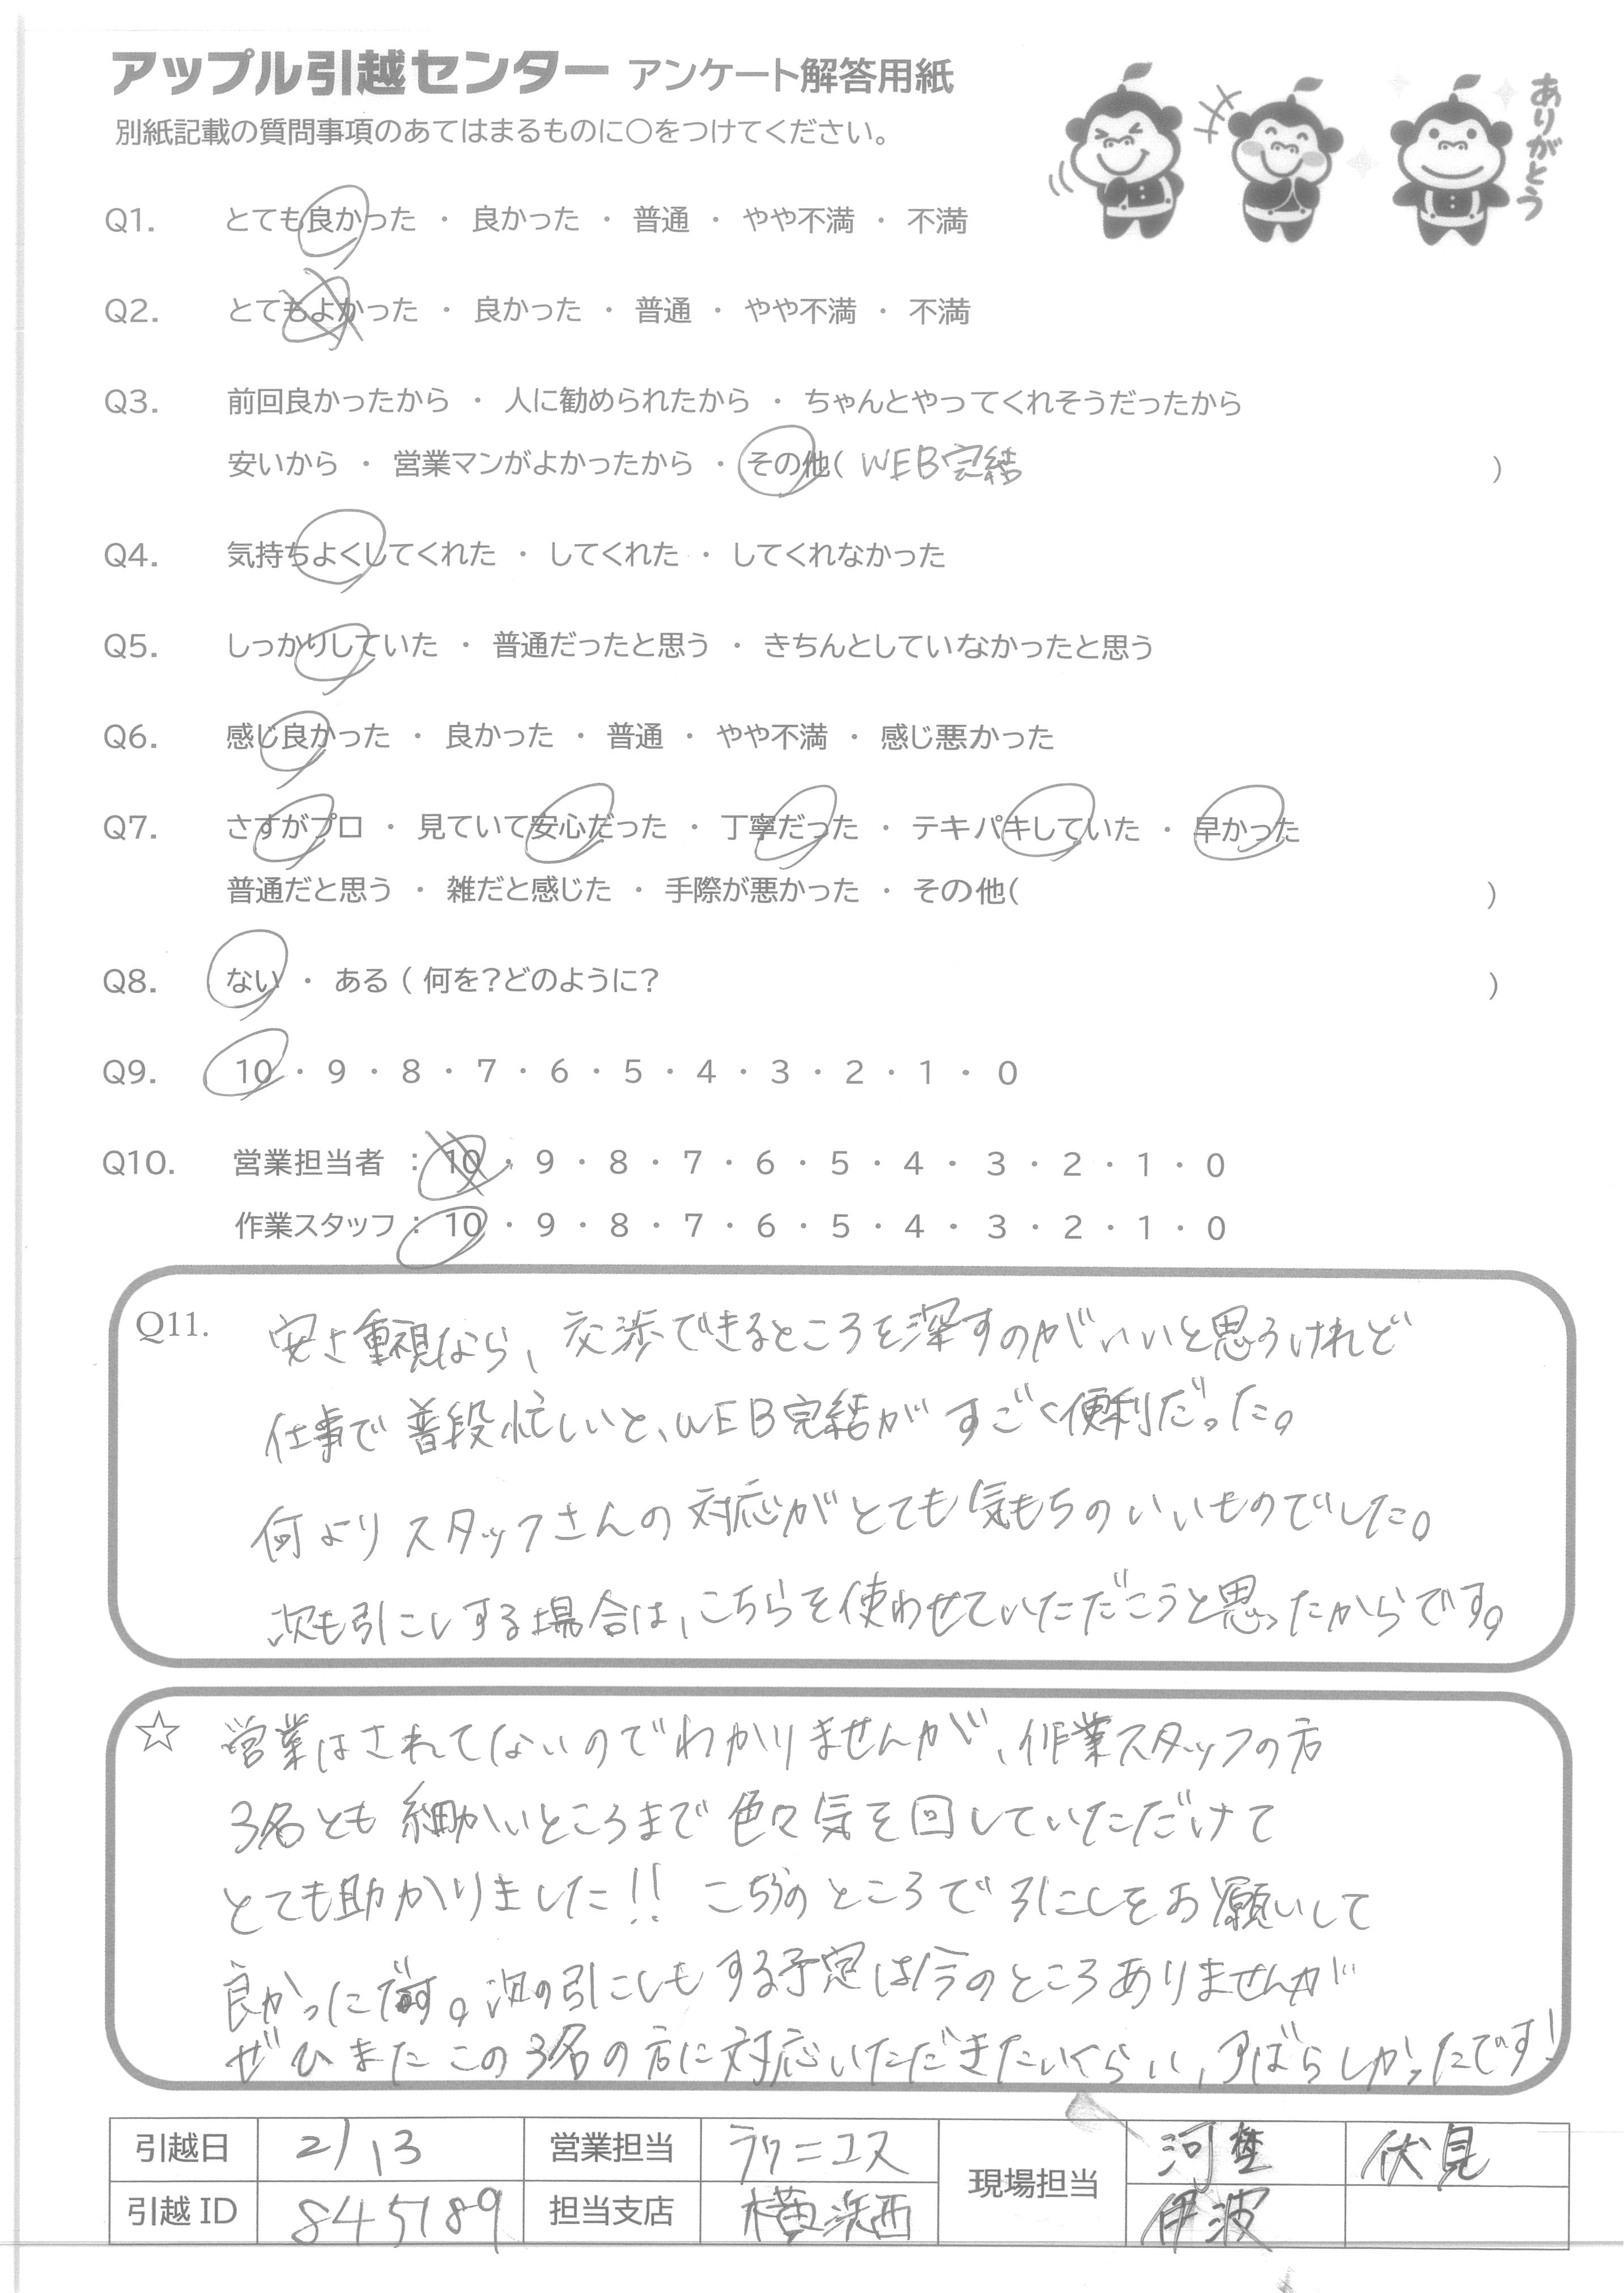 アップル引越センター アンケート解答用紙
別紙記載の質問事項のあてはまるものに○をつけてください。
ありがとう
Q1. とても良かった ・ 良かった ・ 普通 ・ やや不満 ・ 不満
Q2. とてもよかった ・ 良かった ・ 普通 ・ やや不満 ・ 不満
Q3. 前回良かったから ・ 人に勧められたから ・ ちゃんとやってくれそうだったから
安いから ・ 営業マンがよかったから ・ その他( WEB完結 )
Q4. 気持ちよくしてくれた ・ してくれた ・ してくれなかった
Q5. しっかりしていた ・ 普通だったと思う ・ きちんとしていなかったと思う
Q6. 感じ良かった ・ 良かった ・ 普通 ・ やや不満 ・ 感じ悪かった
Q7. さすがプロ ・ 見ていて安心だった ・ 丁寧だった ・ テキパキしていた ・ 早かった
普通だと思う ・ 雑だと感じた ・ 手際が悪かった ・ その他( )
Q8. ない ・ ある ( 何を?どのように? )
Q9. 10 ・ 9 ・ 8 ・ 7 ・ 6 ・ 5 ・ 4 ・ 3 ・ 2 ・ 1 ・ 0
Q10. 営業担当者 : 10 ・ 9 ・ 8 ・ 7 ・ 6 ・ 5 ・ 4 ・ 3 ・ 2 ・ 1 ・ 0
作業スタッフ : 10 ・ 9 ・ 8 ・ 7 ・ 6 ・ 5 ・ 4 ・ 3 ・ 2 ・ 1 ・ 0
Q11. 安さ重視なら、交渉できるところを深すのがいいと思うけれど
仕事で普段忙しいと、WEB完結がすごく便利だった。
何よりスタッフさんの対応がとても気もちのいいものでした。
次も引こしする場合は、こちらを使わせていただこうと思ったからです。
☆ 営業はされてないのでわかりませんが、作業スタッフの方
3名とも細かいところまで色々気を回していただけて
とても助かりました!! こちらのところで引こしをお願いして
良かったです。次の引こしもする予定は今のところありませんが
ぜひまたこの3名の方に対応いただきたいくらい、すばらしかったです!
引越日 2/13 営業担当 ラクニコス 現場担当 河埜 伏見
引越ID 845189 担当支店 横浜西 伊波